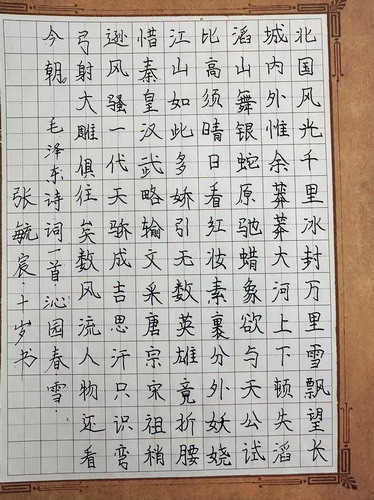 北国风光千里冰封万里雪飘望长
城内外惟余莽莽大河上下顿失滔
滔山舞银蛇原驰蜡象欲与天公试
比高须晴日看红妆素裹分外妖娆
江山如此多娇引无数英雄竟折腰
惜秦皇汉武略输文采唐宗宋祖稍
逊风骚一代天骄成吉思汗只识弯
弓射大雕俱往矣数风流人物还看
今朝. 毛泽东诗词一首 沁园春雪.
张毓宸.十岁书